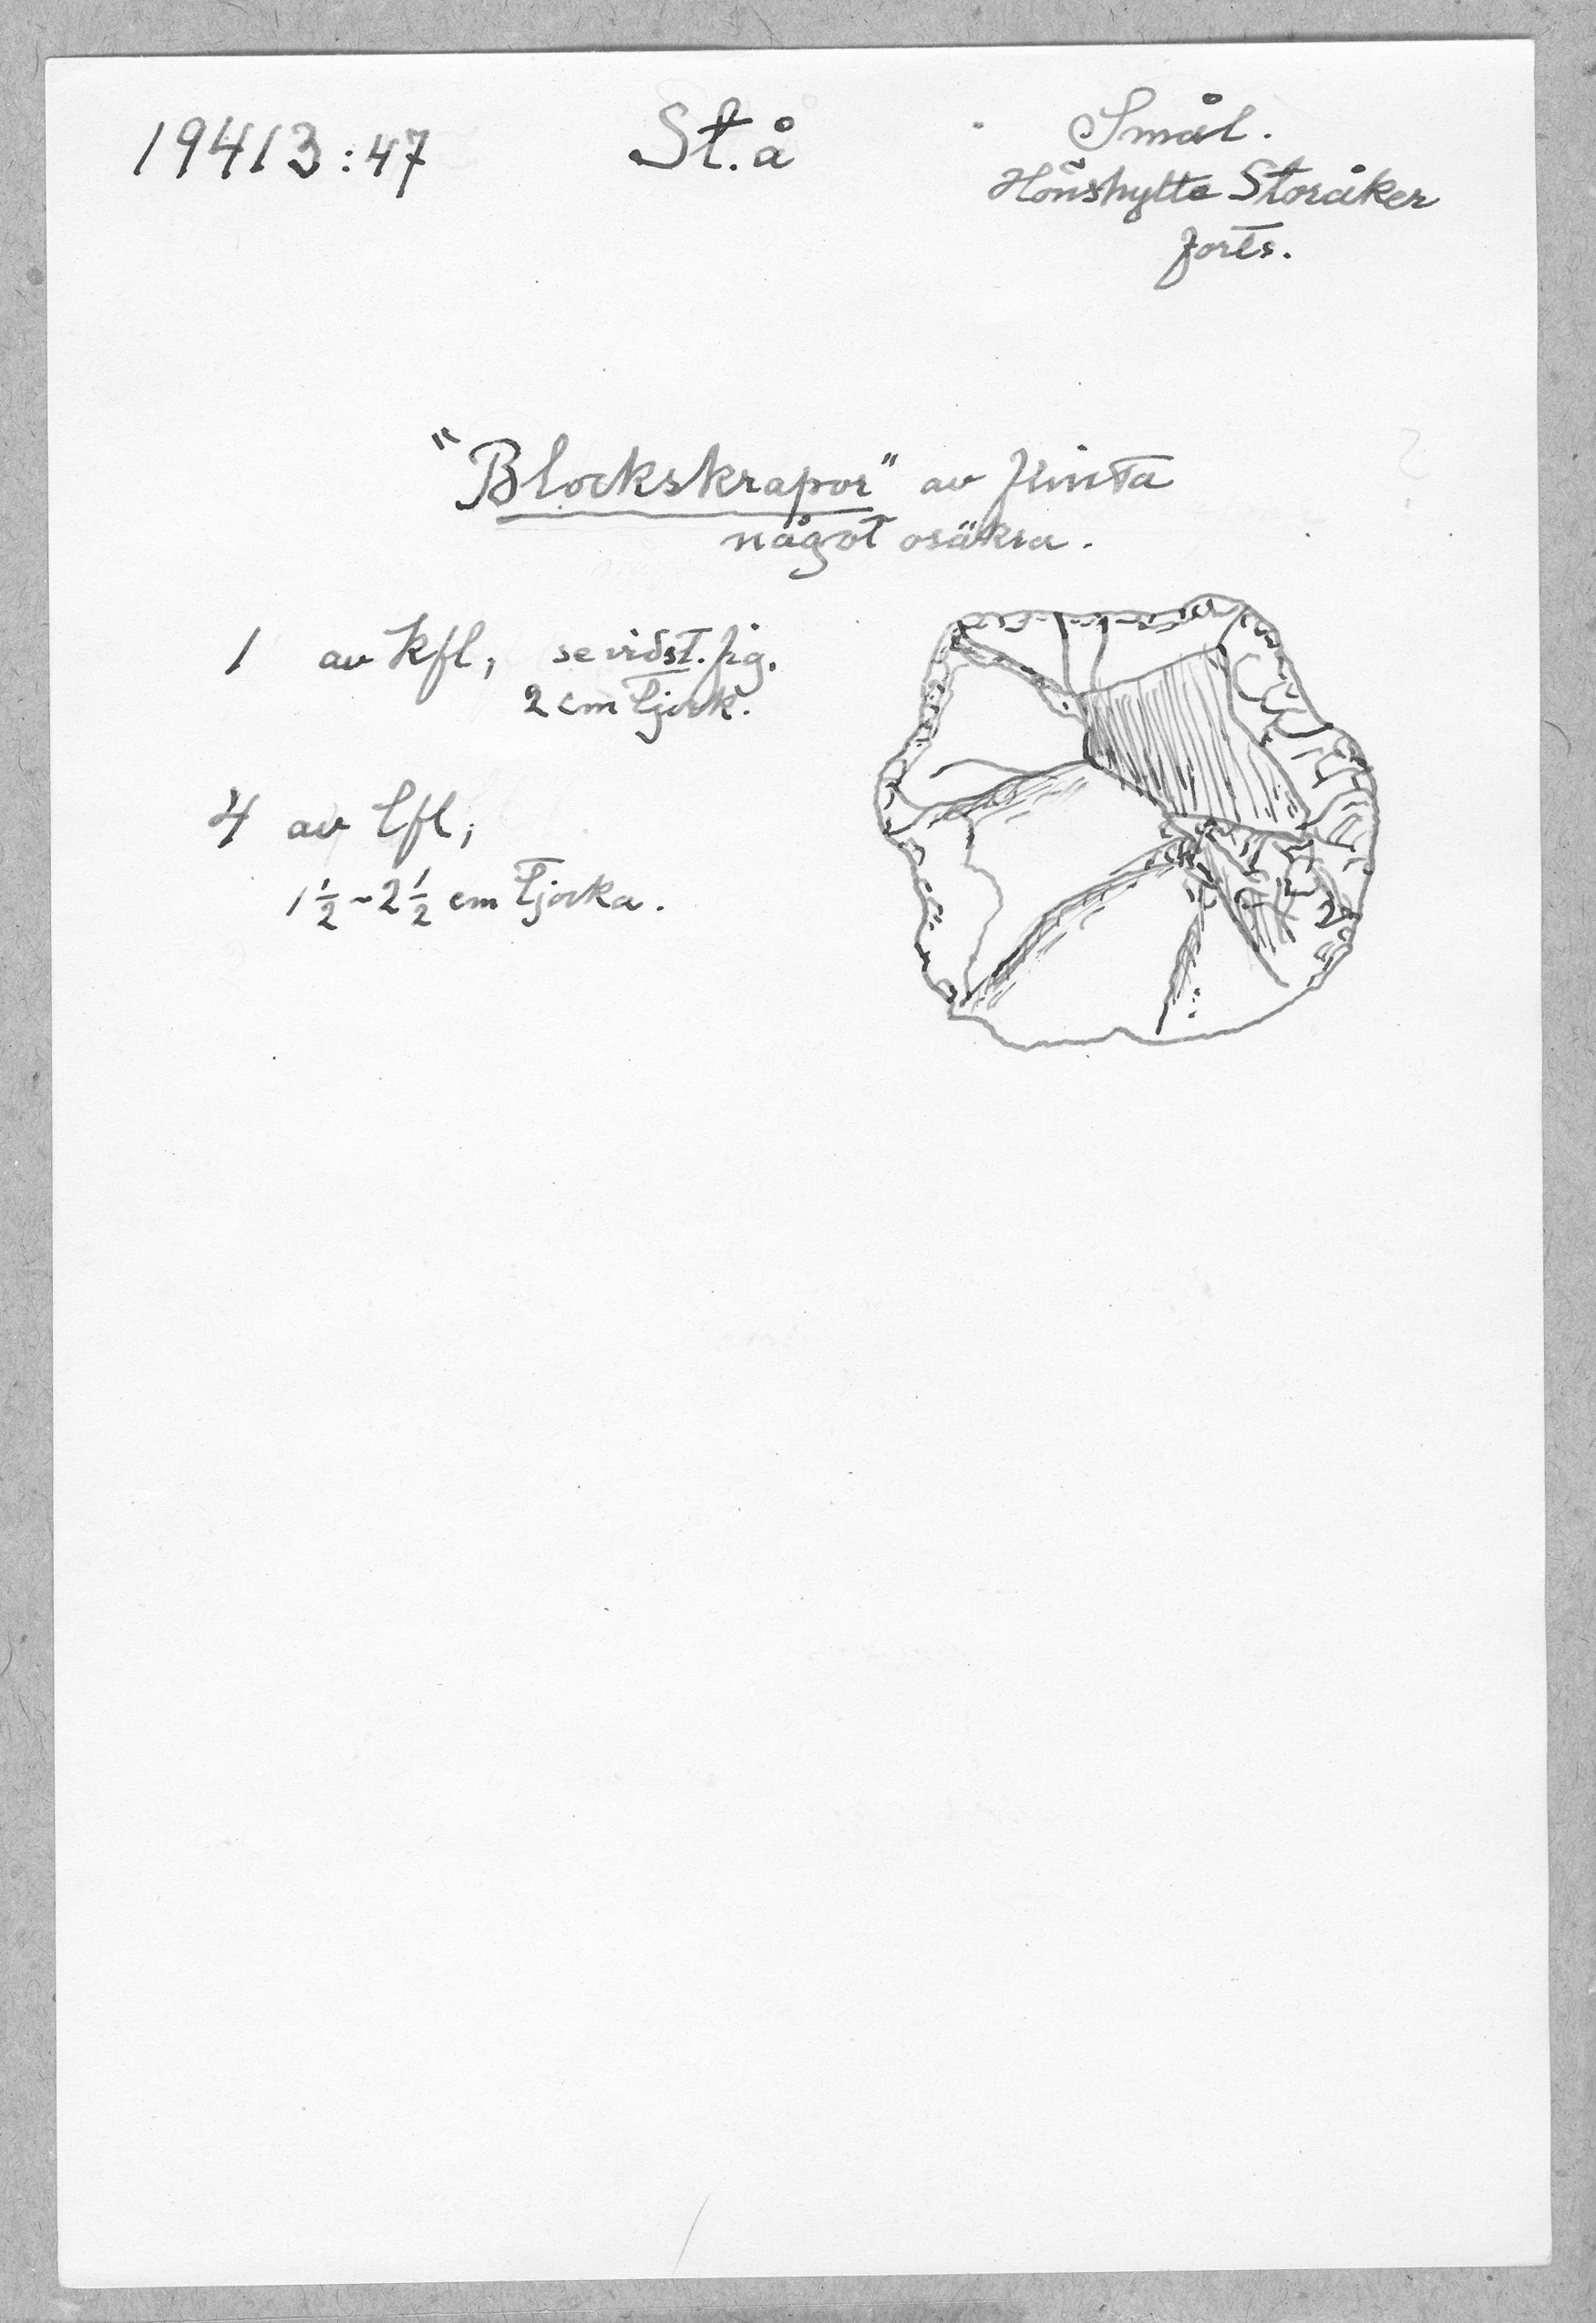 19413:47
St.å
Smål.
Hönshylte Storåker
forts.
"Blockskrapor" av flinta
något osäkra.
1 av kfl, se vidst. fig.
2 cm tjock.
4 av lfl;
1½-2½ cm tjocka.